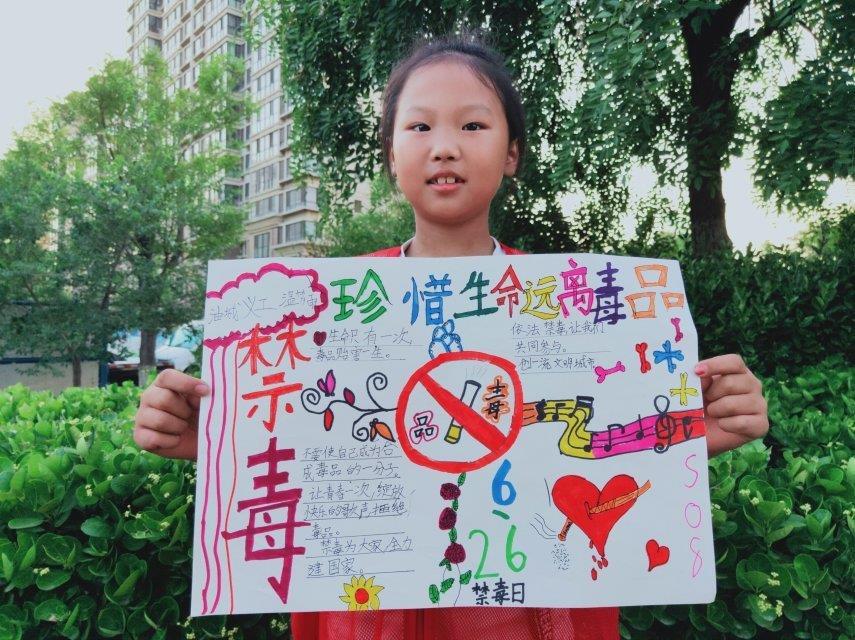 油城义工
珍惜生命远离毒品
禁示毒
生命只有一次,
毒品贻害一生。
依法禁毒让我们
共同参与。
创一流文明城市
品 毒
不要使自己成为合
成毒品的一分子。
让青春一次,绽放
快乐的歌声拒绝
毒品。
禁毒为大家,全力
建国家。
6.26
禁毒日
508